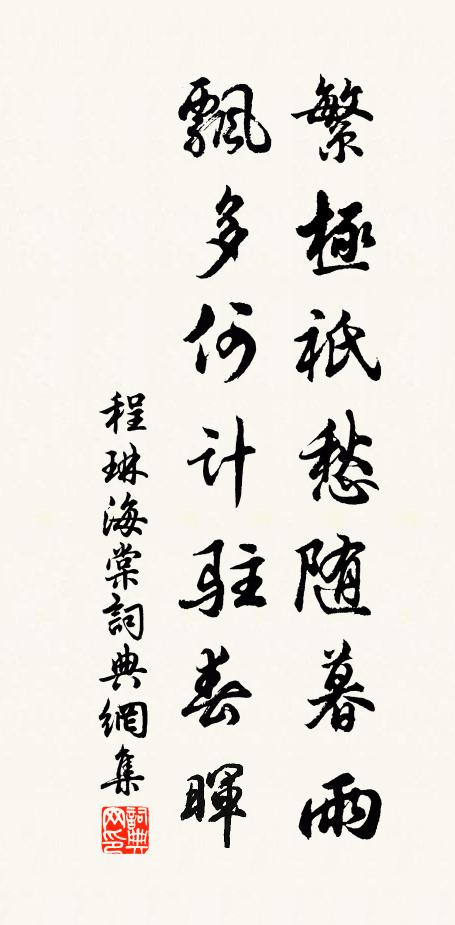 繁極祇愁随暮雨
飄多何计驻春暉
程琳海棠詞典網集
詞典网印